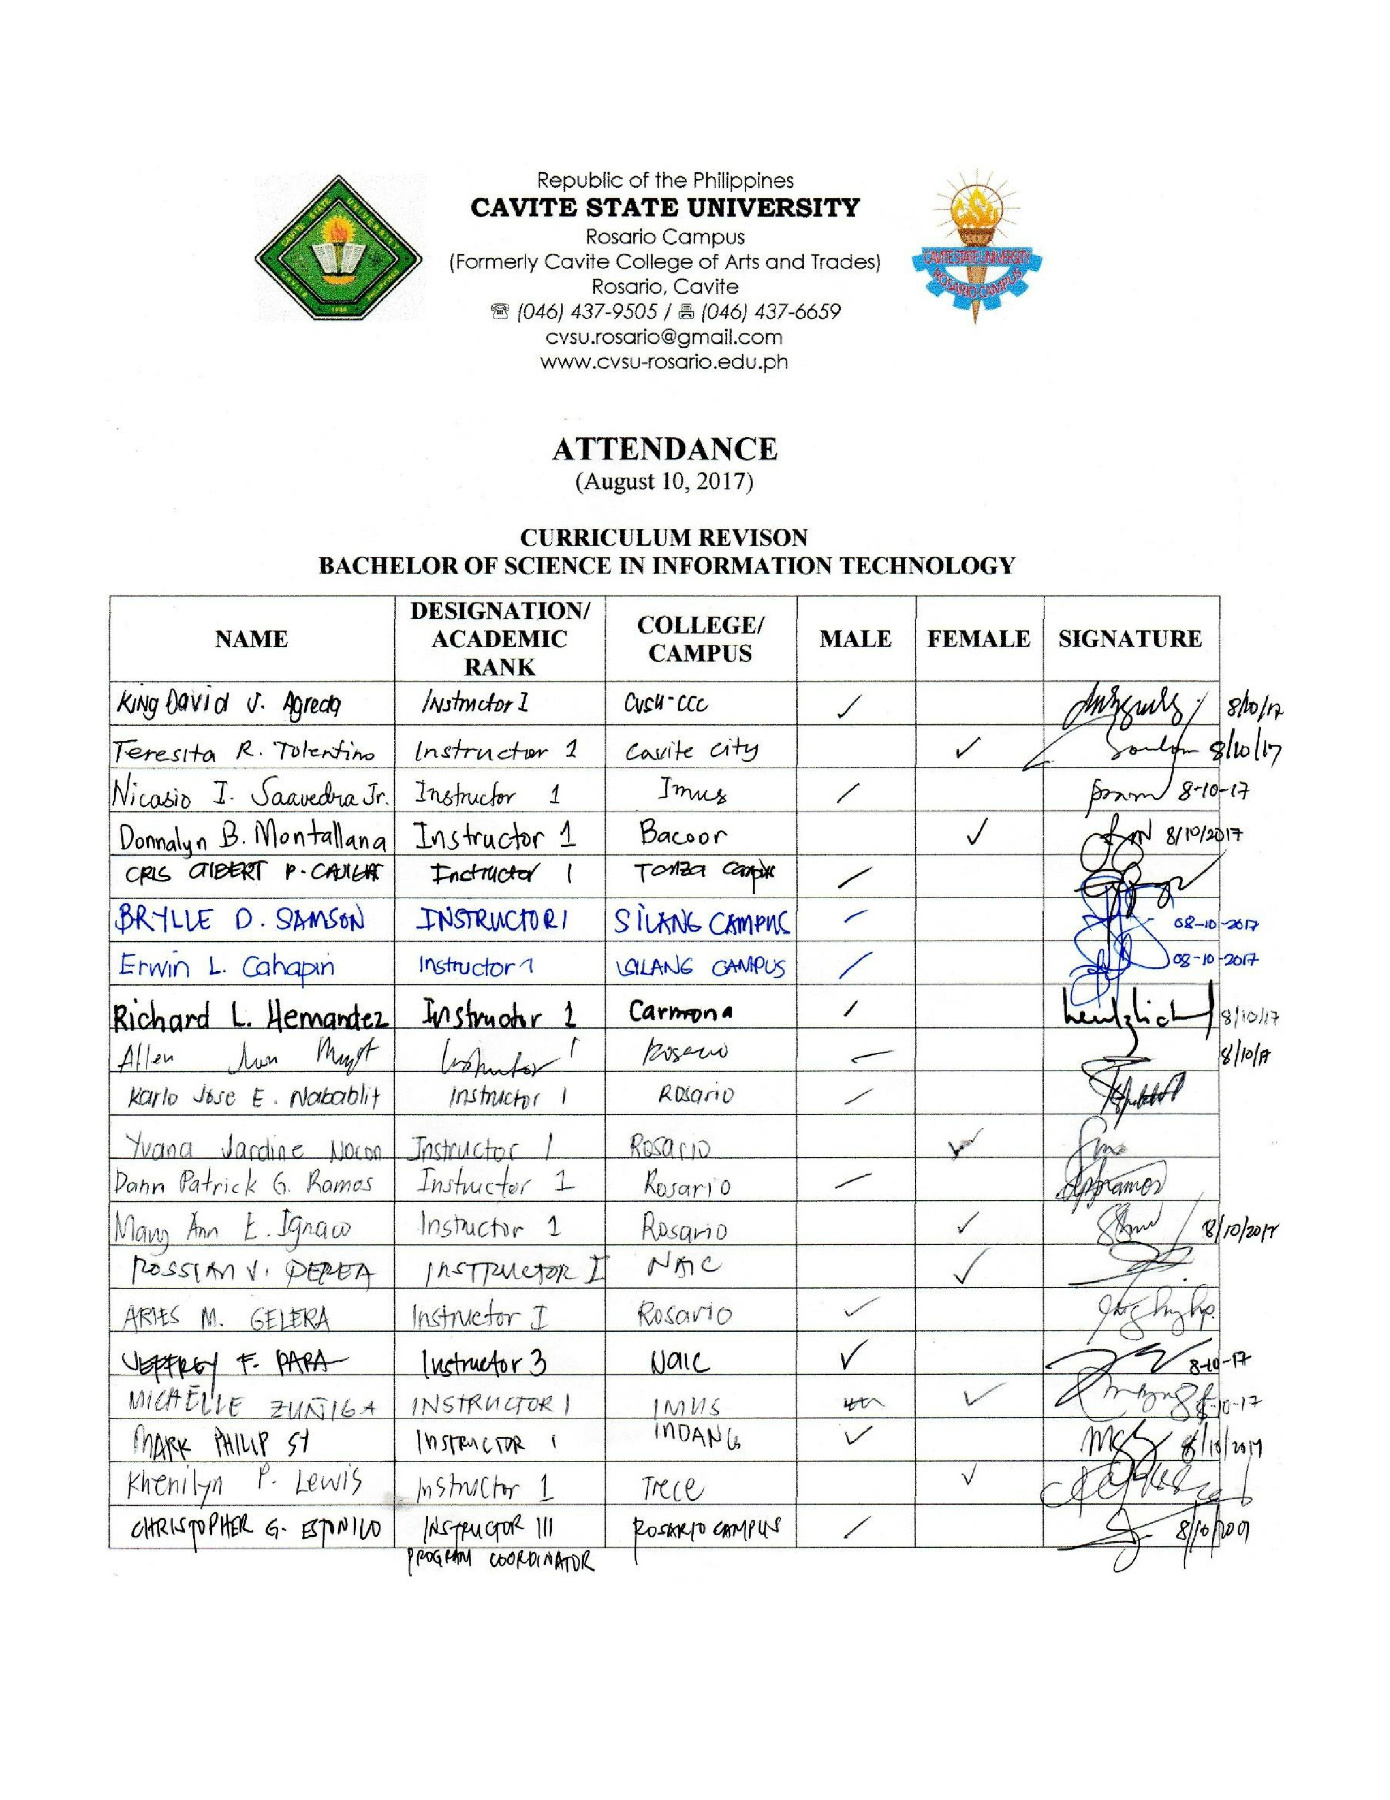 Republic of the Philippines
CAVITE STATE UNIVERSITY
Rosario Campus
(Formerly Cavite College of Arts and Trades)
Rosario, Cavite
☎ (046) 437-9505 / (046) 437-6659
cvsu.rosario@gmail.com
www.cvsu-rosario.edu.ph
CAVITE STATE UNIVERSITY
ROSARIO CAMPUS
ATTENDANCE
(August 10, 2017)
CURRICULUM REVISON
BACHELOR OF SCIENCE IN INFORMATION TECHNOLOGY
NAME DESIGNATION/ ACADEMIC RANK COLLEGE/ CAMPUS MALE FEMALE SIGNATURE
King David J. Agreda Instructor I CvSU-CCC ✓ 8/10/17
Teresita R. Tolentino Instructor 1 Cavite City ✓ 8/10/17
Nicasio I. Saavedra Jr. Instructor 1 Imus / 8-10-17
Donnalyn B. Montallana Instructor 1 Bacoor ✓ 8/10/2017
CRIS GILBERT P. Instructor 1 Tanza Campus /
BRYLLE D. SAMSON INSTRUCTOR 1 SILANG CAMPUS / 08-10-2017
Erwin L. Cahapin Instructor 1 SILANG CAMPUS / 08-10-2017
Richard L. Hernandez Instructor 1 Carmona / 8/10/17
Allen Instructor 1 Rosario / 8/10/17
Karlo Jose E. Nabablit Instructor 1 Rosario /
Yvana Jardine Nocon Instructor 1 Rosario ✓
Dann Patrick G. Ramos Instructor 1 Rosario /
Mary Ann E. Ignaco Instructor 1 Rosario ✓ 8/10/2017
ROSSIAN V. PEREA INSTRUCTOR I NAIC ✓
ARIES M. GELERA Instructor I Rosario ✓
JEFFREY F. PAPA Instructor 3 Naic ✓ 8-10-17
MICHELLE ZUÑIGA INSTRUCTOR 1 IMUS ✓ 8-10-17
MARK PHILIP SY INSTRUCTOR 1 INDANG ✓ 8/10/2017
Khenilyn P. Lewis Instructor 1 Trece ✓
CHRISTOPHER G. ESTONILO INSTRUCTOR III ROSARIO CAMPUS / 8/10/2017
PROGRAM COORDINATOR